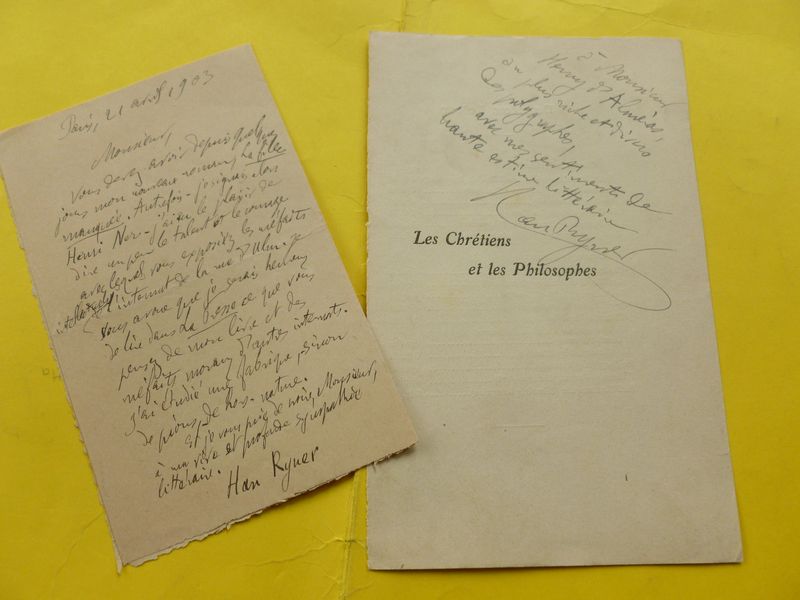 Paris, 21 avril 1903
Monsieur,
Vous devez avoir depuis quelques
jours mon nouveau roman, La fille
manquée. Autrefois - je signais alors
Henri Ner - j'ai eu le plaisir de
dire un peu le talent et le courage
avec lesquels vous exposiez les méfaits
intellectuels
de l'internat de la rue d'Ulm. Je
vous avoue que je serais heureux
de lire dans La Presse ce que vous
pensez de mon livre et des
méfaits moraux d'autres internats.
J'ai étudié une fabrique, sinon
de pions, de hors-nature.
Et je vous prie de croire, Monsieur,
à ma vive et profonde sympathie
littéraire.
Han Ryner
à Monsieur
Henry d'Alméras,
au plus riche et divers
des polygraphes,
avec mes sentiments de
haute estime littéraire
Han Ryner
Les Chrétiens
et les Philosophes